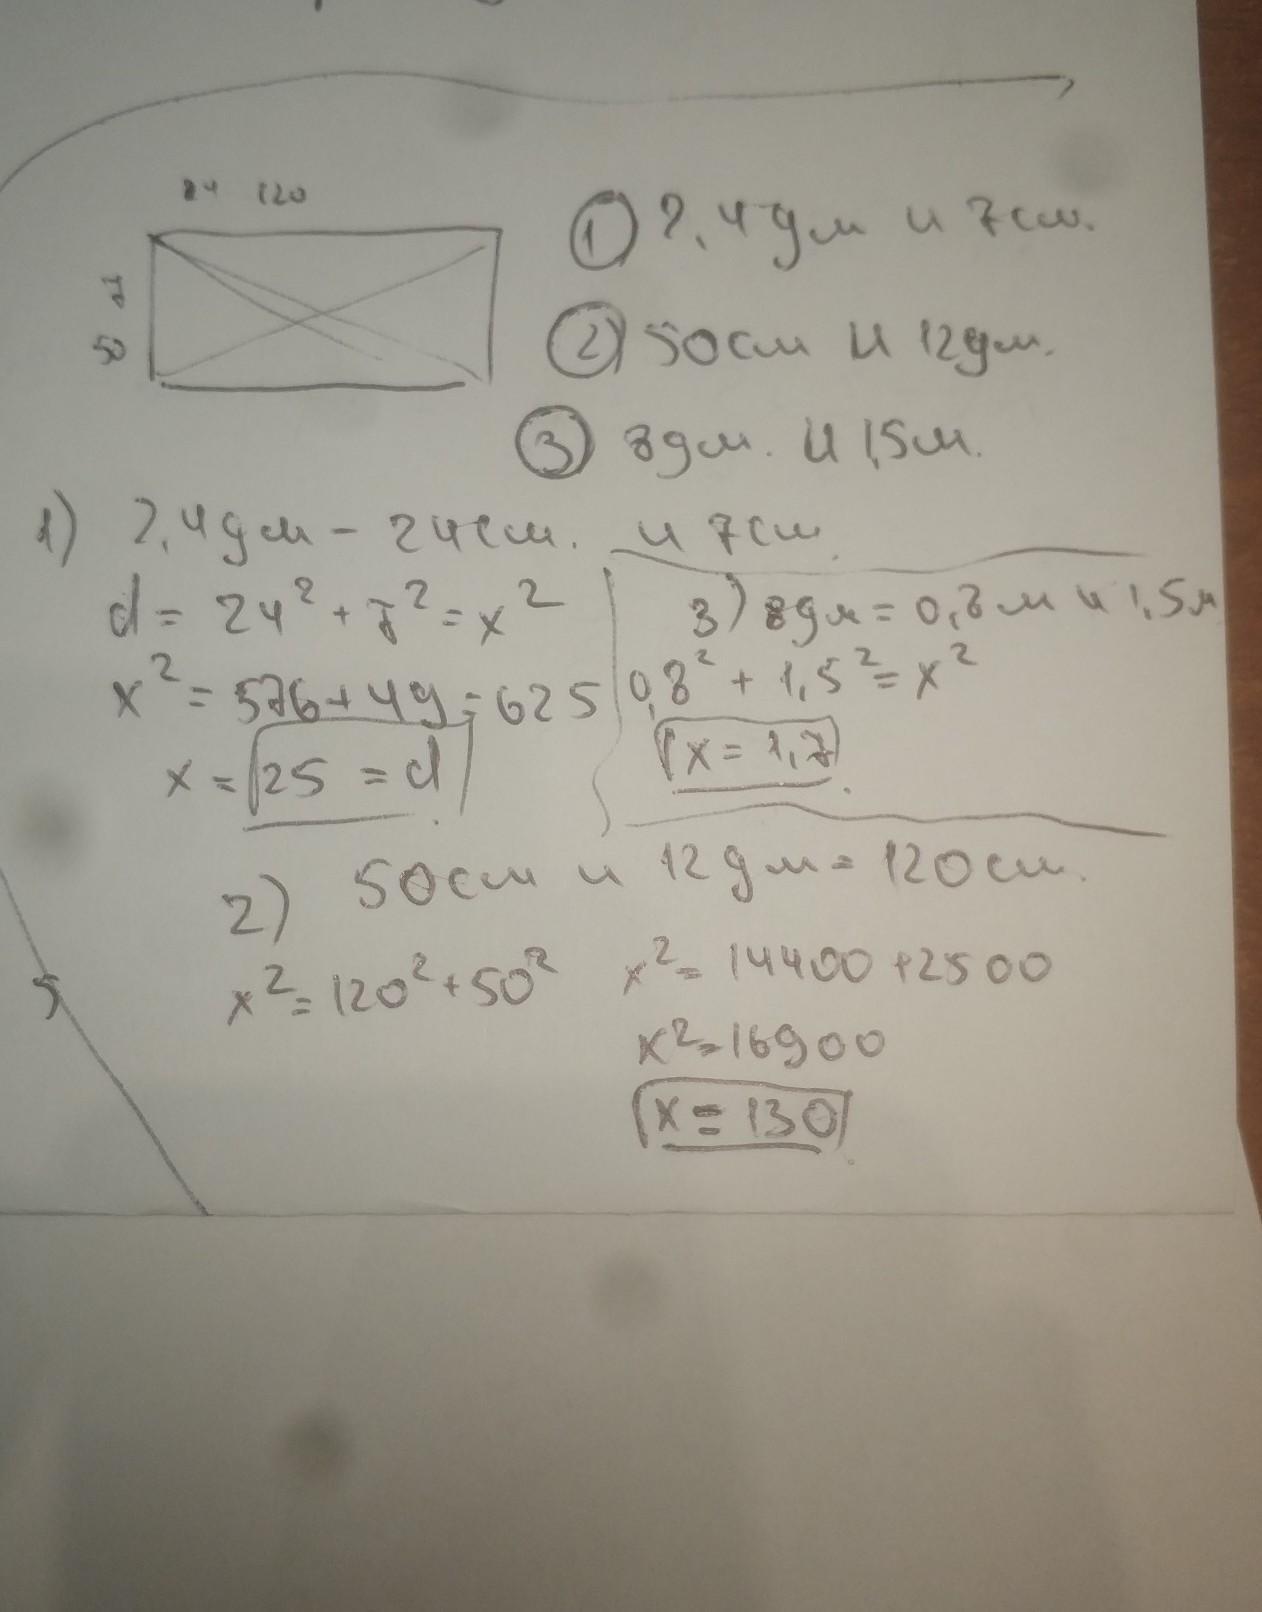 24 120
7
50
① 2,4дм и 7см.
② 50см и 12дм.
③ 8дм. и 1,5м.
1) 2,4дм - 24см. и 7см
d = 24² + 7² = x²
x² = 576 + 49 = 625
x = 25 = d
3) 8дм = 0,8м и 1,5м
0,8² + 1,5² = x²
x = 1,7
2) 50см и 12дм = 120см.
x² = 120² + 50²
x² = 14400 + 2500
x² = 16900
x = 130